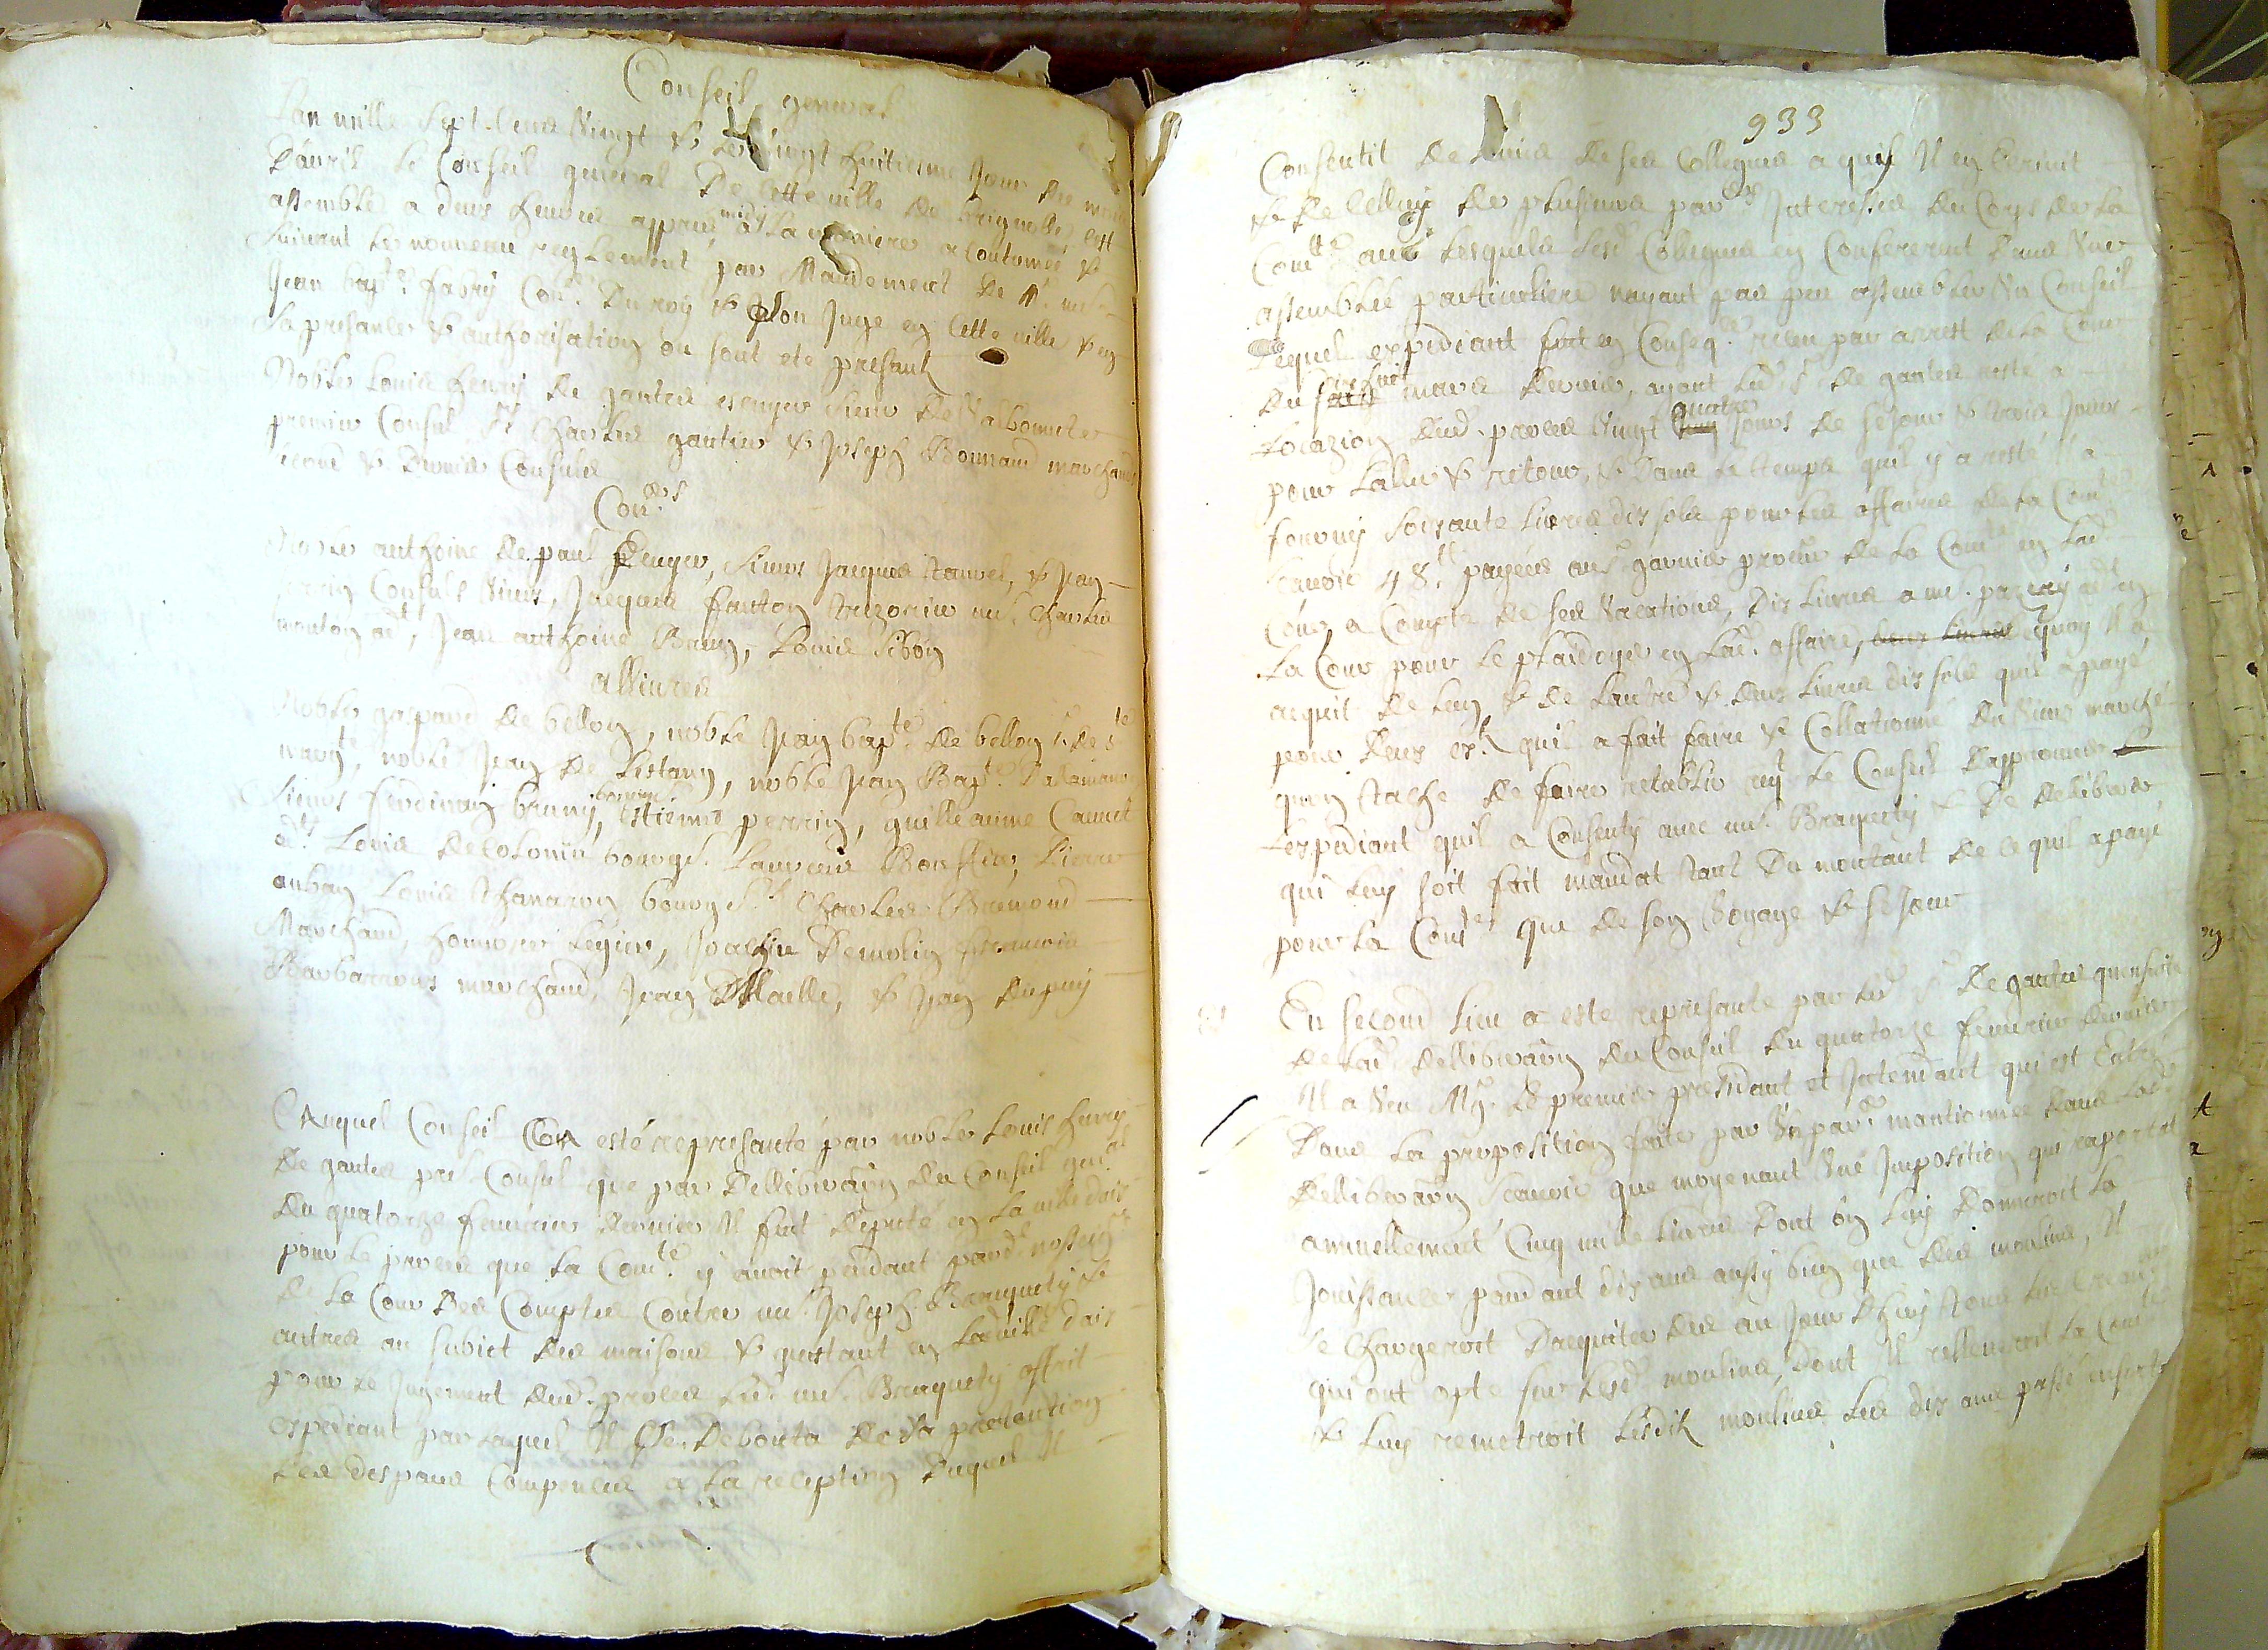 Conseil general
Lan mille sept Cens Vingt & le Vingt huitiesme Jour du mois
Dauril le Conseil general De Cette ville de brignolle est
assemblé a deux heures appres midy a la maniere acoutumée &
suiuant le nouueau reglement par Mandement de Mr me
Jean bapte fabry Conr Du roy & son Juge en Cette ville & en
sa presance & authorisation ou sont ete presants
Noble Louis henry de gantes escuyer sieur de Valbonnete
premier Consul sr Charles gautier & Joseph Bonnaud marchands
second & Dernier Consuls
Coners
Noble anthoine de paul Escuyer, sieurs Jacques & Jean
Consuls vieux, Jacques fauton trezorier me Charles
mouton adt, Jean anthoine Brun, Louis Sibon
alliures
Noble gaspard de bellon, noble Jean bapte de bellon sr de ste
noble Jean de Lestang, noble Jean Bapte Dalamanon
sieurs ferdinan brunij, bourgs estienne perrin, guilleaume Cauuet
adt Louis de Colonia bourgs Laurens Bonstin, Pierre
auban Louis Chanaron bourgs sr Charles Bremond
Marchand, honnoré Leguier, Joachin Demolin francois
Barbarroux marchand, Jean Dille, & Jean dupuy
Auquel Conseil a esté represanté par noble Louis henry
De gantes prer Consul que par Dellibraon du Conseil genal
du quatorze feurier dernier Il fut deputé en la ville daix
pour le proces que la Comte y auoit pendant pard nosseigrs
de la Cour des Comptes Contre me Joseph Braquety &
autres au subiet des maisons & questant en ladite ville daix
pour le Jugement dud. proces led. me Braquety offrit
expediant par laquel Il se Debouta de sa pretention
les despans Compences a la reception duquel Il
933
Consentit de lauis de ses Collegues a quij Il en Escriuit
& de Celluy de plusieurs pars Interesses du Corps de la
Comte auec lesquels lesd Collegues en Confererent dans Vne
assemblée particuliere nayant pas peu assembler Vn Conseil
Lequel expediant fut en Conseqce receu par arrest de la Cour
du huit mars dernier, ayant led. sr de gantes resté a
Locazion dud. proces Vingt quatre Jours de seJour & trois Jours
pour laller & retour, & dans le temps quil y a resté Il a
fourny soixante liures dix sols pour les affaires de la Comte
scauoir 48 ll payées au sr garnier procur de la Comte en lad.
Cour a Compte de ses Vacations, dix liures a me. adt en
la Cour pour le plaidoyé en lad. affaire, deux liures quoy Il a
acquit de lun & de lautre & deux liures dix sols quil a payé
pour deux ext quil a fait faire & Collationné du vieux marché
quon tache de faire retablir reqt le Conseil dapprouuer
lexpediant quil a Consenty auec me. Braquety & de deliberer
qui luy soit fait mandat tant du montant de ce quil a payé
pour la Comte que de son Voyage & seJour
En second lieu a esté represanté par led sr de gantes quensuite
de lad. dellibraon du Conseil du quatorze feurier dernier
Il a Veu Mgr. le premier president et Jntendant qui est Entré
dans la proposition faite par Vn parer mantionnée dans lade
dellibraon scauoir que moyenant Vne Jmposition qui raportat
annuellement Cinq mille liures dont on luy donneroit la
Jouissance pandant dix ans aussy bien que des moulins, Il
se chargeroit daquiter des au Jour dhuy tous les Crean
qui ont opté sur lesd moulins, dont Il relleueroit la Comte
& luy remetroit lesdits moulins les dix ans passé